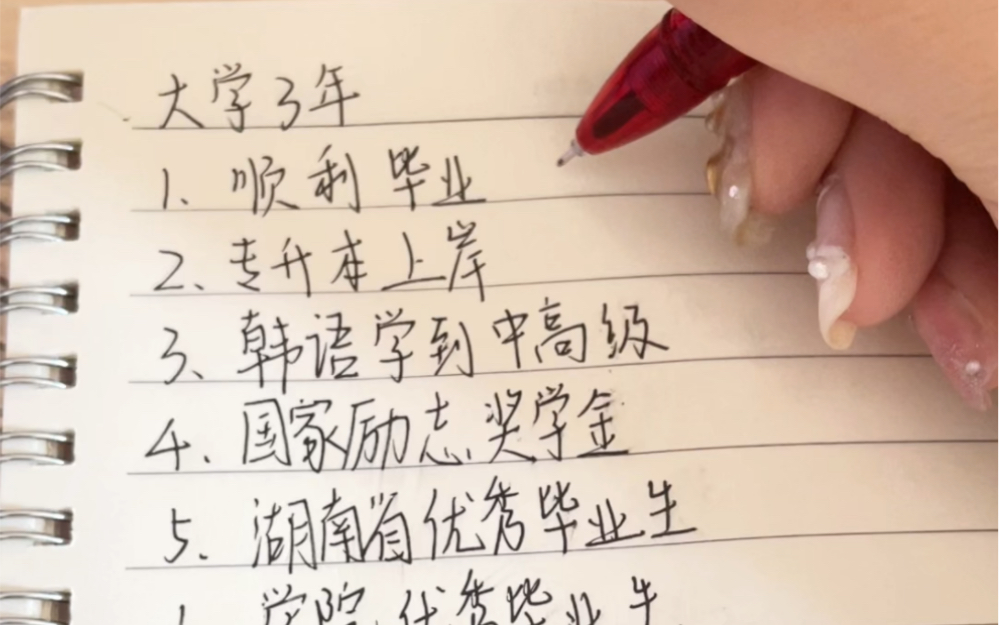 大学3年
1、顺利毕业
2、专升本上岸
3、韩语学到中高级
4、国家励志奖学金
5、湖南省优秀毕业生
学院优秀毕业生